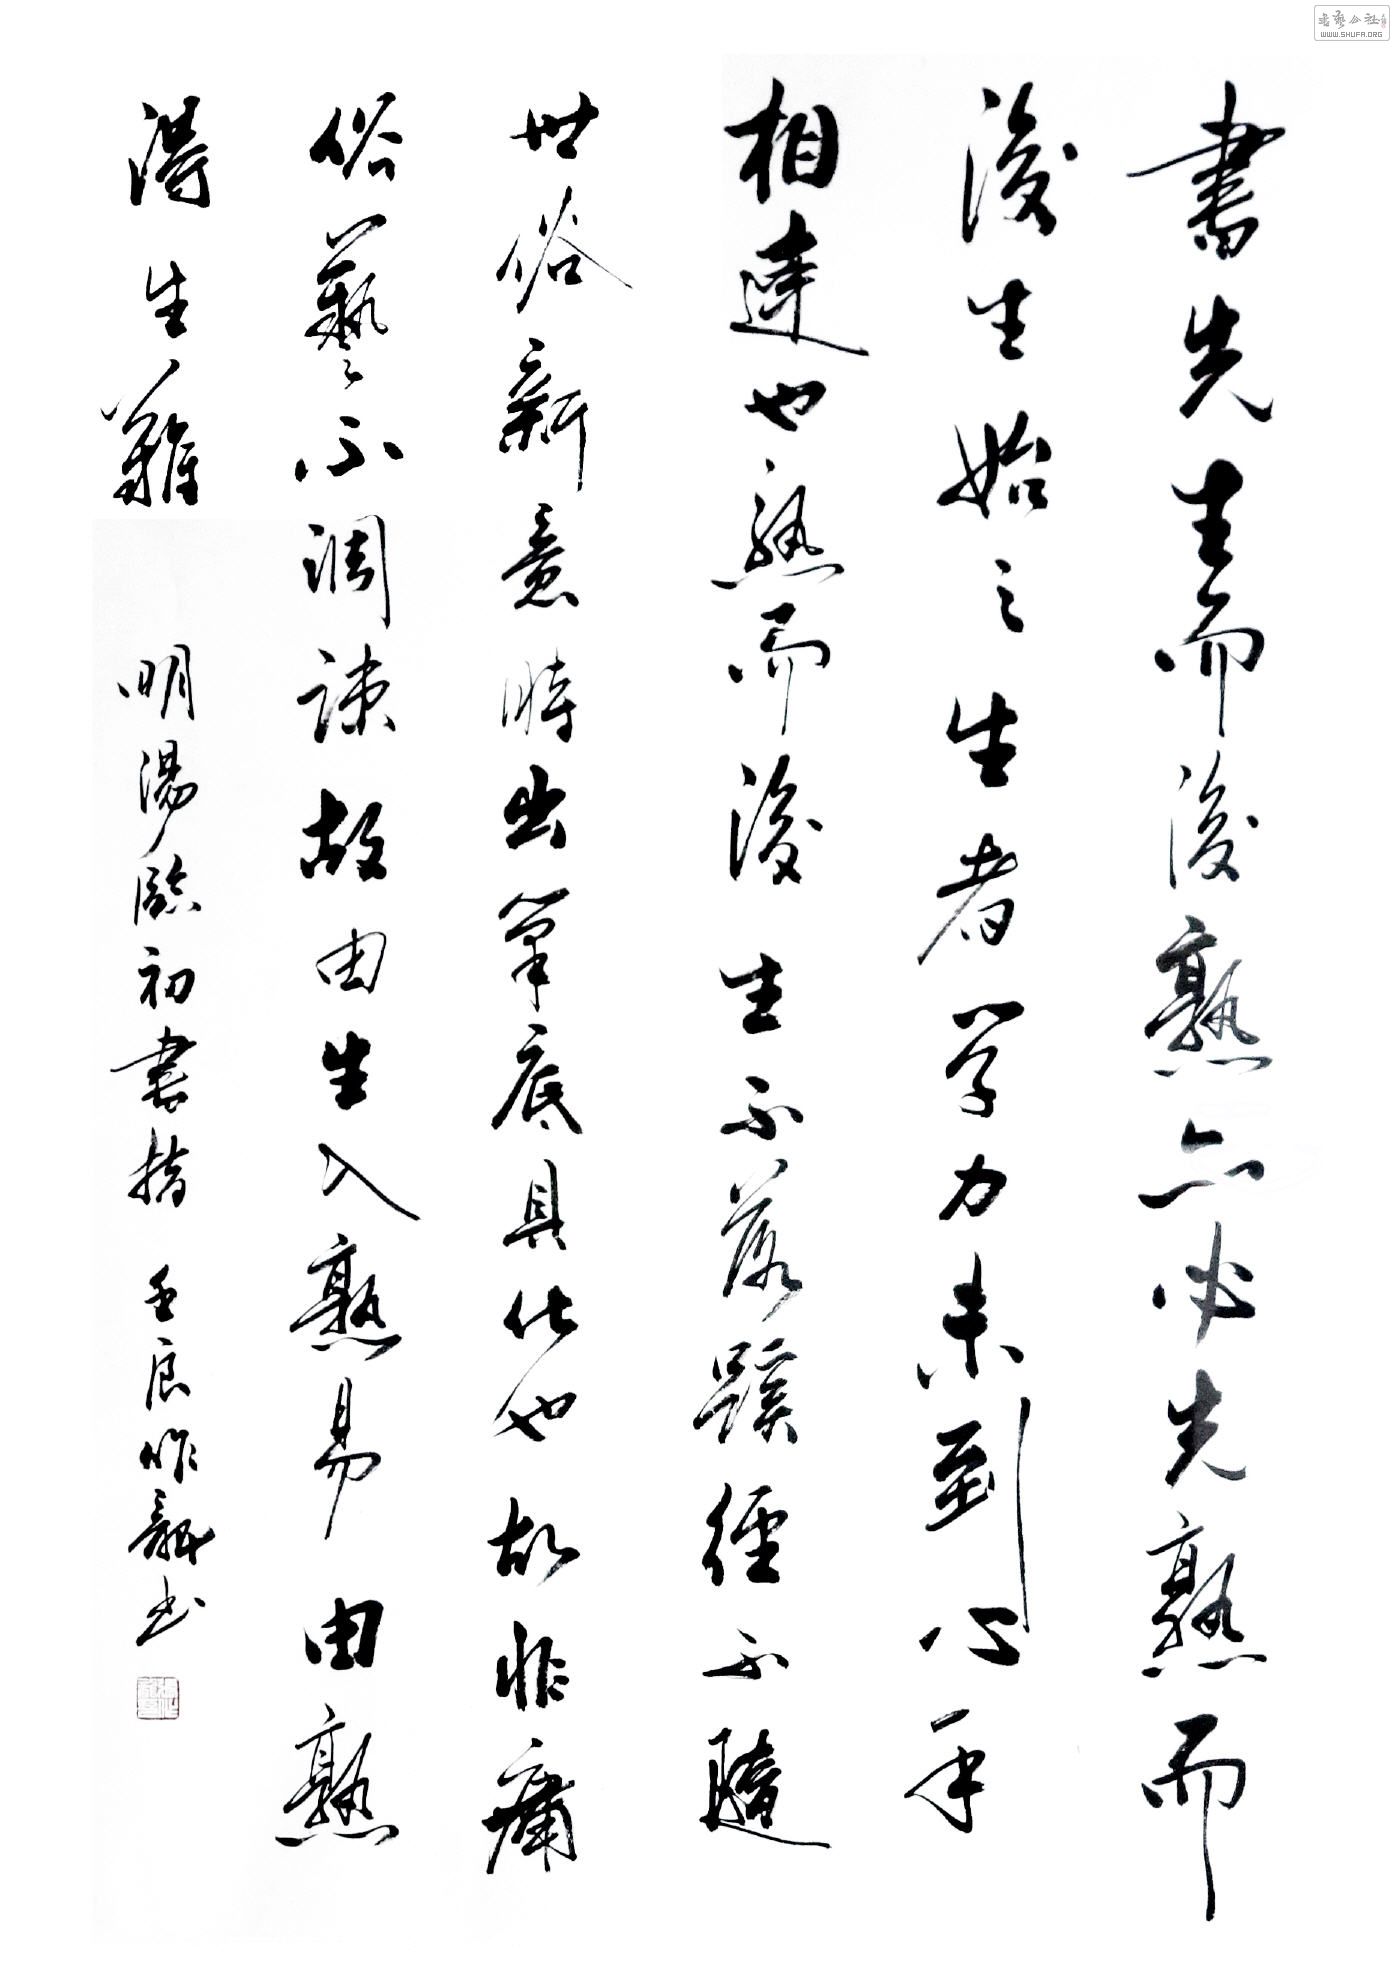 書艺公社
WWW.SHUFA.ORG
書先生而後熟亦必先熟而
後生始之生者学力未到心手
相違也熟而後生不落蹊徑不隨
世俗新意時出筆底具化也故非庸
俗藝不凋疎故由生入熟易由熟
得生難 明湯臨初書指 壬辰作龍书